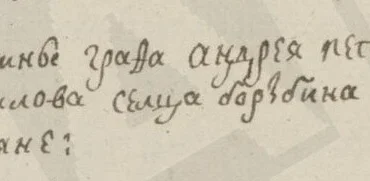 инье графа андрея пет
илова селица борѣбина
ане: